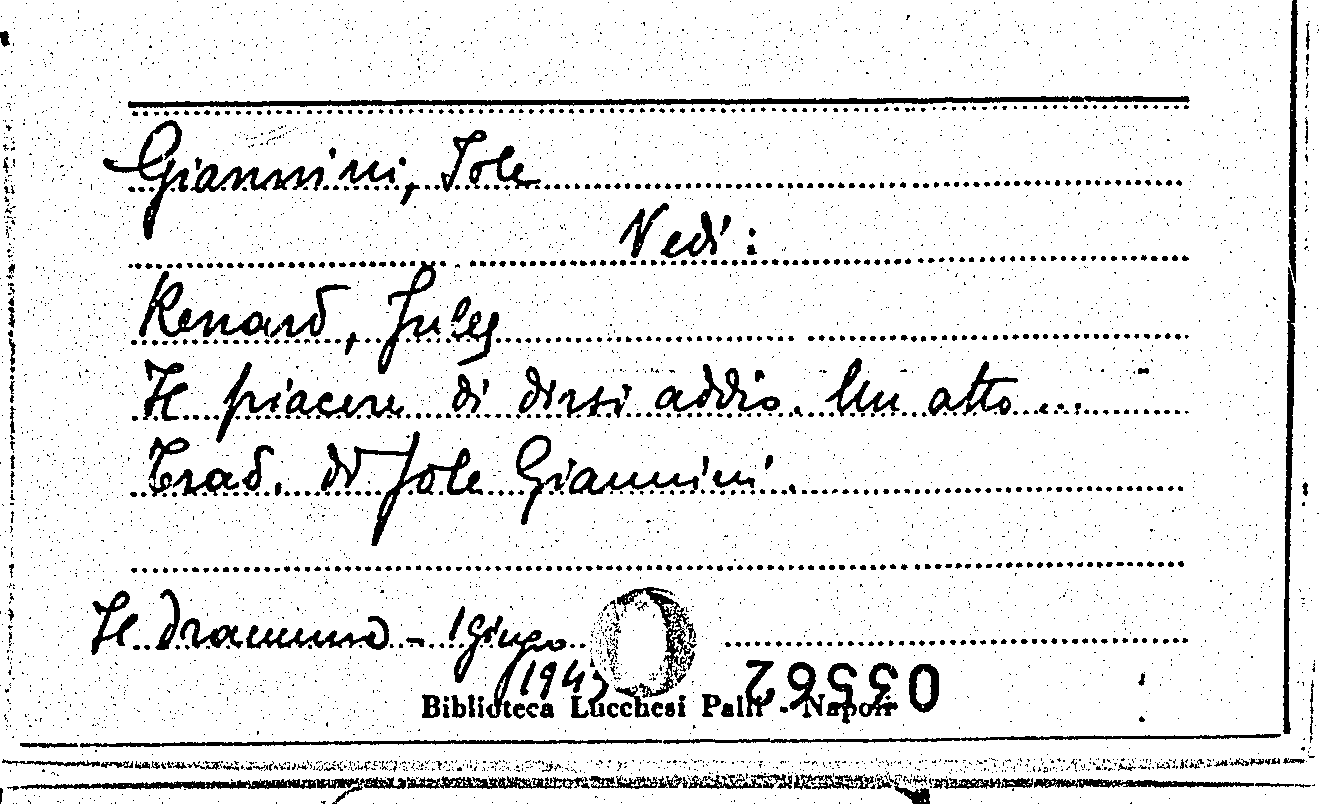 Giannini, Jole
Vedi:
Renard, Jules
Il piacere di dirsi addio. Un atto...
Trad. di Jole Giannini.
Il dramma - 1 Giugno
Biblioteca Lucchesi Palli - Napoli
03562